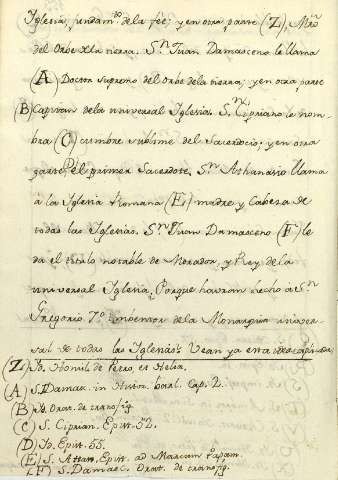 Iglesia, fundam.to de la feé; y en otra parte (Z), Mro
del Orbe de la tierra. S.n Juan Damasceno le llama
(A) Doctor supremo del Orbe de la tierra; y en otra parte
(B) Capitan de la universal Iglesia. S.n Cipriano le nom-
bra (C) cumbre sublime del Sacerdocio; y en otra
parte (D) el primer Sacerdote. S.n Athanasio llama
à la Iglesia Romana (E) madre y Cabeza de
todas las Iglesias. S.n Juan Damasceno (F) le
da el titulo notable de Morador, y Rey de la
universal Iglesia. Porque havran hecho à S.n
Gregorio 7.o inventor de la Monarquia univer-
sal de todas las Iglesias. Vean ya esta idea
(Z) Id. Homil. de Petro, et Helia.
(A) S. Damas. in Histor. barl. Cap. 2.
(B) Id. Orat. de transfig.
(C) S. Ciprian. Epist. 52.
(D) Id. Epist. 55.
(E) S. Attan. Epist. ad Marcum Papam.
(F) S. Damasc. Orat. de transfig.